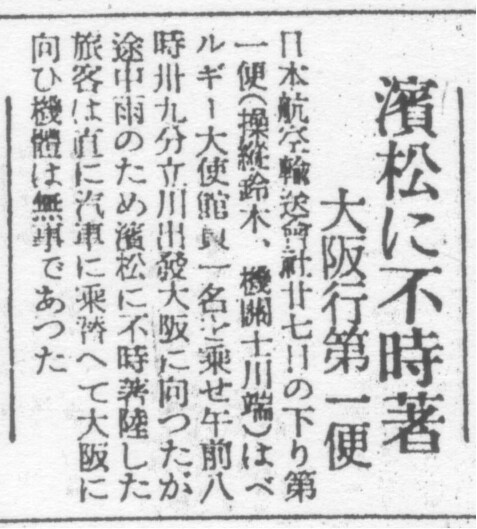 濱松に不時著
大阪行第一便
日本航空輸送會社廿七日の下り第
一便(操縱鈴木、機關士川端)はベ
ルギー大使館員一名を乘せ午前八
時卅九分立川出發大阪に向つたが
途中雨のため濱松に不時著陸した
旅客は直に汽車に乘替へて大阪に
向ひ機體は無事であつた